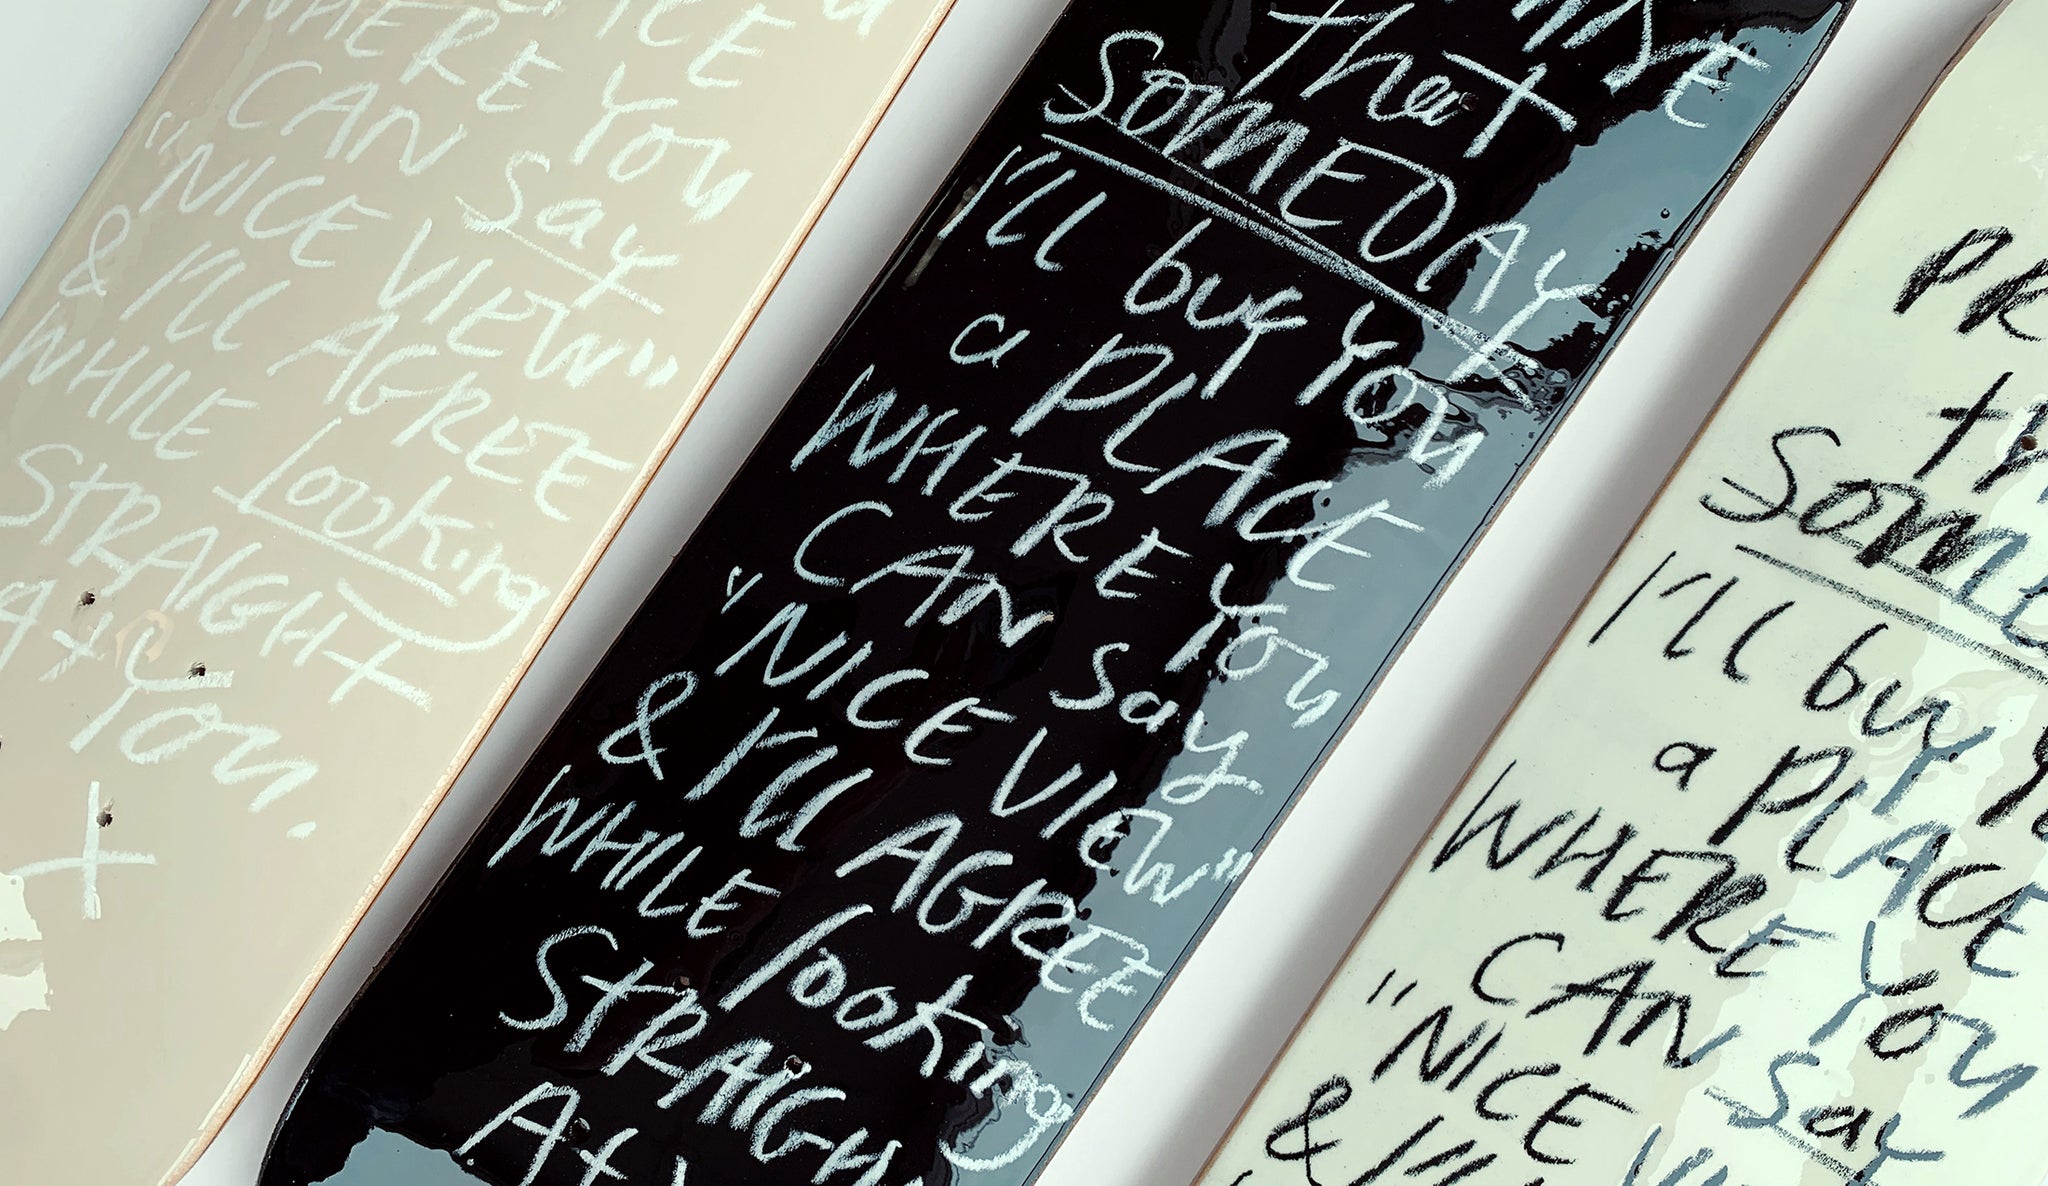 PLACE
WHERE You
CAN Say
"NICE VIEW"
& I'll AGREE
WHILE looking
StRAIGHt
At You.
that
SOMEDAY
I'll buy You
a PLACE
WHERE You
CAN Say
"NICE VIEW"
& I'll AGREE
WHILE looking
StRAIGH
At
PR
th
Some
I'll buy Y
a PLACE
WHERE You
CAN Say
"NICE
& I'll